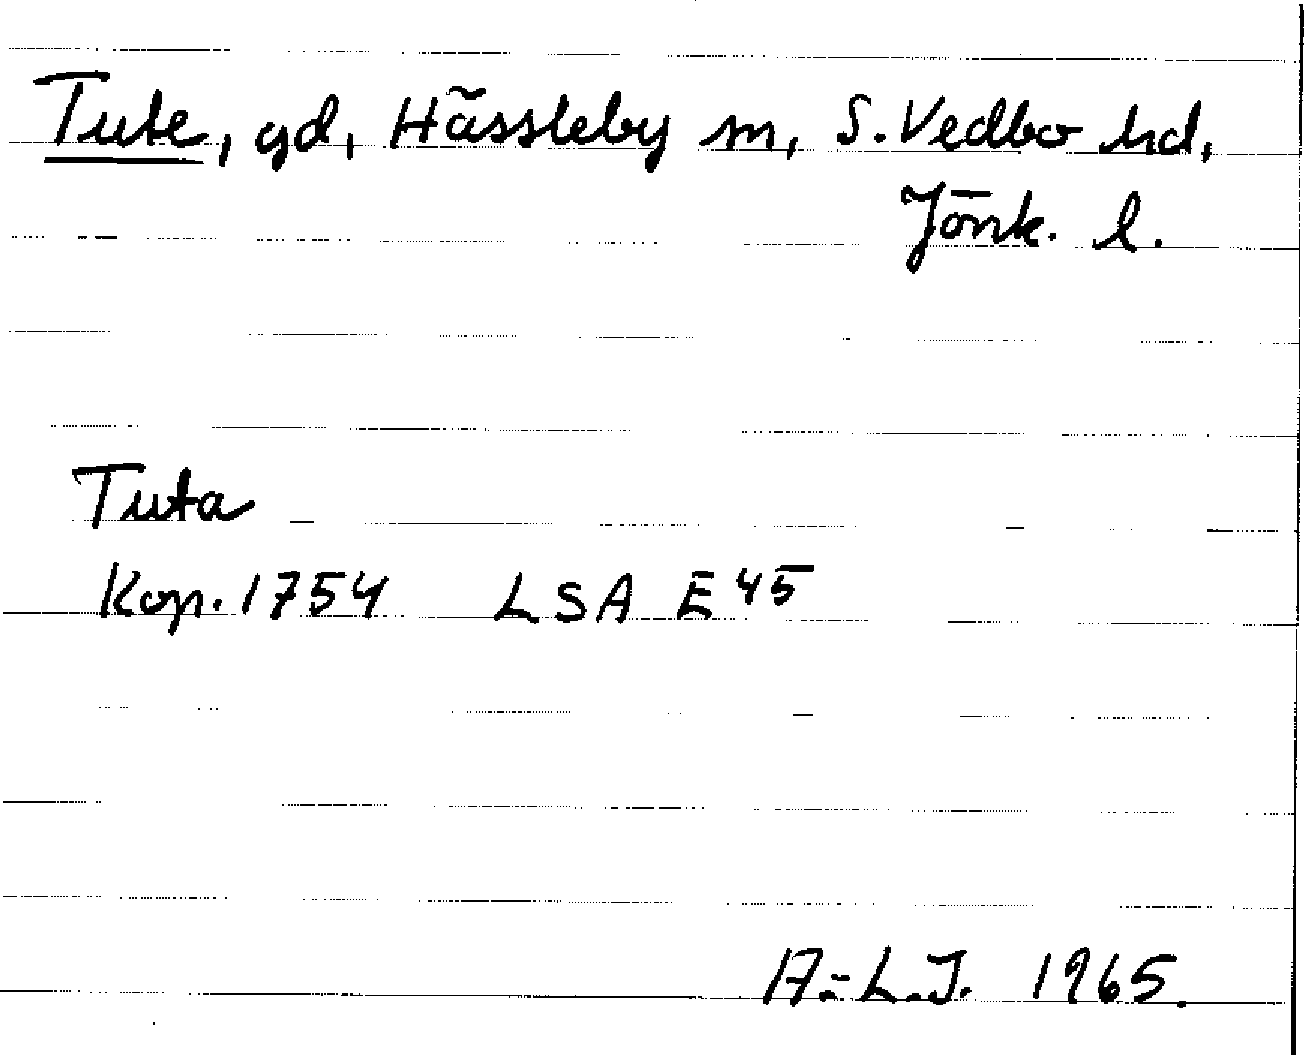 Tute, gd, Hässleby sn, S. Vedbo hd,
Jönk. l.
Tuta
Kop. 1754 LSA E 45
A-L.J. 1965.